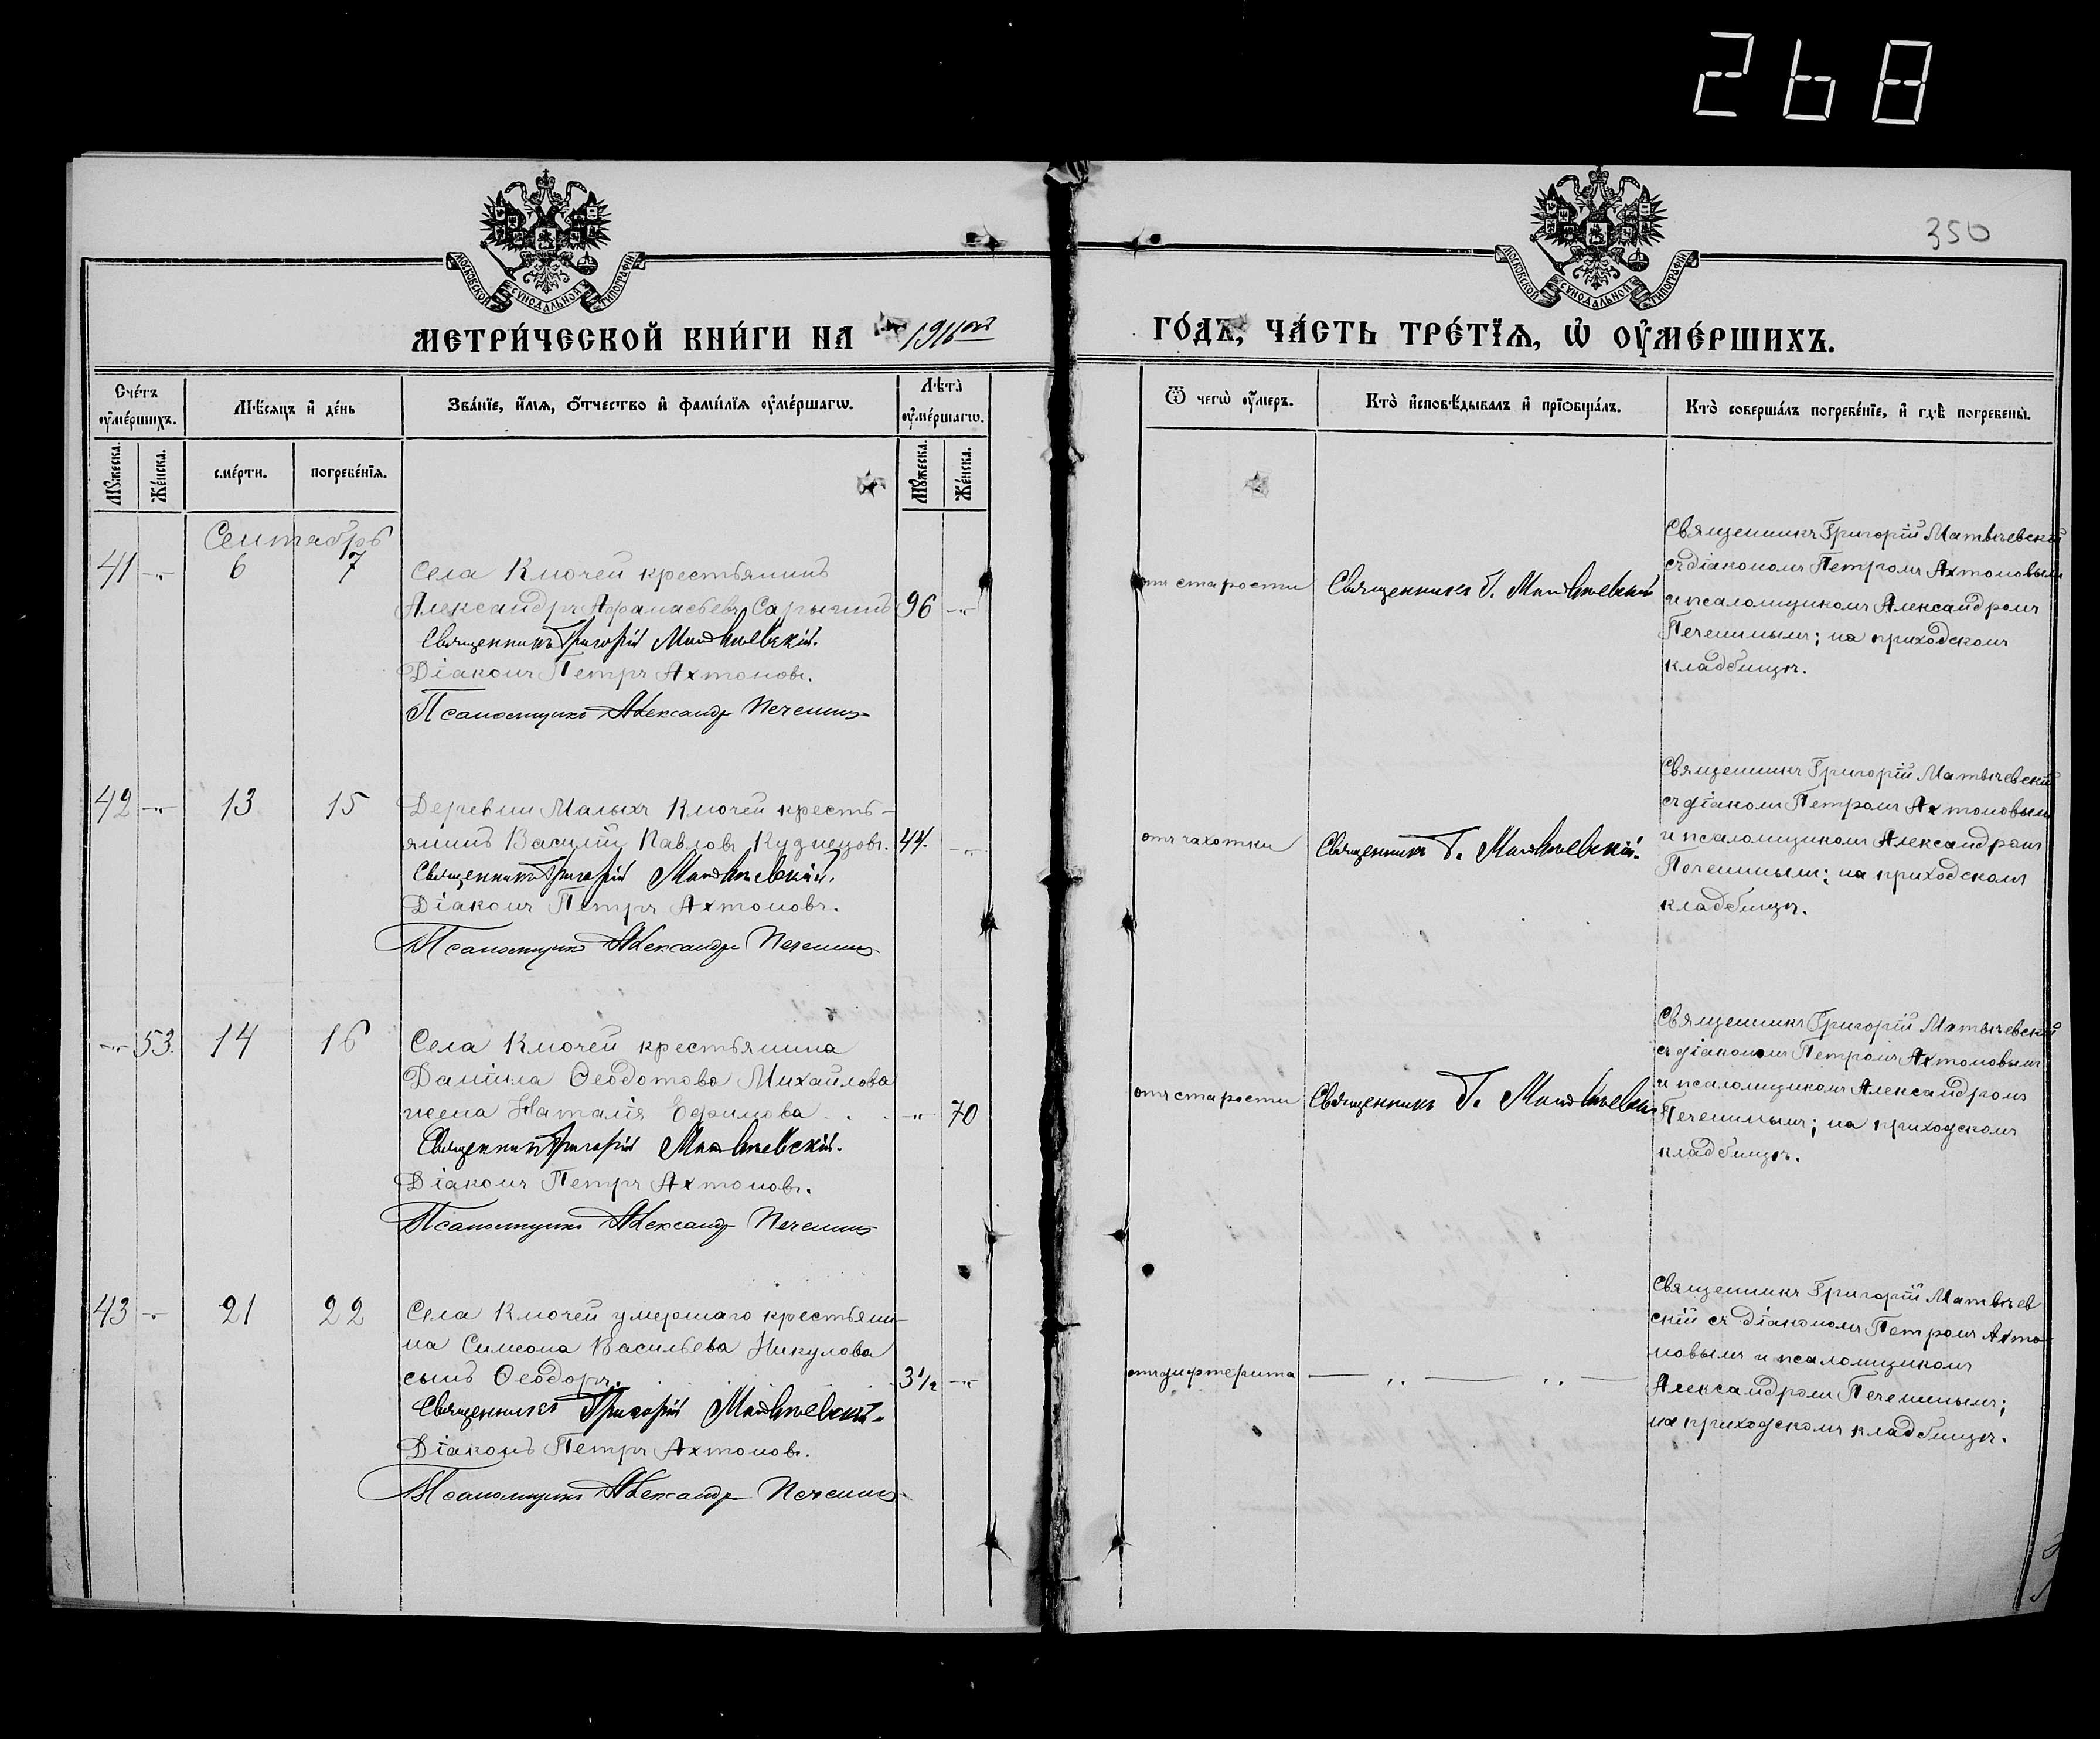 268
350
МОСКОВСКОЙ СѴНОДАЛЬНОЙ ТИПОГРАФІИ
МОСКОВСКОЙ СѴНОДАЛЬНОЙ ТИПОГРАФІИ
МЕТРИ́ЧЕСКОЙ КНИ́ГИ НА 1916ый
ГО́ДЪ, ЧА́СТЬ ТРЕ́ТЇѦ, Ѡ҆ ОУ҆МЕ́РШИХЪ.
Сче́тъ оу҆ме́ршихъ.
Мѣ́сѧцъ и҆ де́нь
Зва́нїе, и҆́мѧ, ѻ҆́тчество и҆ фами́лїѧ оу҆ме́ршагѡ.
Лѣ̀та оу҆ме́ршагѡ.
Ѿ чегѡ̀ оу҆́меръ.
Кто̀ и҆сповѣ́дывалъ и҆ прїѡбща́лъ.
Кто̀ соверша́лъ погребе́нїе, и҆ гдѣ̀ погребены̀.
Мꙋ́жеска.
Же́нска.
сме́рти.
погребе́нїѧ.
Мꙋ́жеска.
Же́нска.
Сентябрь
41 -"- 6 7
Села Ключей крестьянинъ
Александръ Афанасьевъ Сарычинъ 96 -"-
Священникъ Григорій Матвѣевскій.
Діаконъ Петръ Ахтоновъ.
Псаломщикъ Александръ Печенинъ
отъ старости
Священникъ Г. Матвѣевскій
Священникъ Григорій Матвѣевскій
съ діакономъ Петромъ Ахтоновымъ
и псаломщикомъ Александромъ
Печенинымъ; на приходскомъ
кладбищѣ.
42 -"- 13 15
Деревни Малыхъ Ключей кресть-
янинъ Василій Павловъ Кузнецовъ. 44. -"-
Священникъ Григорій Матвѣевскій.
Діаконъ Петръ Ахтоновъ.
Псаломщикъ Александръ Печенинъ
отъ чахотки
Священникъ Г. Матвѣевскій.
Священникъ Григорій Матвѣевскій
съ діаконом Петромъ Ахтоновымъ
и псаломщикомъ Александромъ
Печенинымъ; на приходскомъ
кладбищѣ.
-"- 53. 14 16
Села Ключей крестьянина
Даніила Ѳеодотова Михайлова
жена Наталія Ефимова . . -"- 70
Священникъ Григорій Матвѣевскій.
Діаконъ Петръ Ахтоновъ.
Псаломщикъ Александръ Печенинъ
отъ старости
Священникъ Г. Матвѣевскій
Священникъ Григорій Матвѣевскій
съ діакономъ Петромъ Ахтоновымъ
и псаломщикомъ Александромъ
Печенинымъ; на приходскомъ
кладбищѣ.
43 -"- 21 22
Села Ключей умершаго крестьяни-
на Симеона Васильева Никулова
сынъ Ѳеодоръ. 3 1/2 -"-
Священникъ Григорій Матвѣевскій.
Діаконъ Петръ Ахтоновъ.
Псаломщикъ Александръ Печенинъ
отъ дифтерита
— " — " —
Священникъ Григорій Матвѣев
скій съ діакономъ Петромъ Ахто-
новымъ и псаломщикомъ
Александромъ Печенинымъ;
на приходскомъ кладбищѣ.